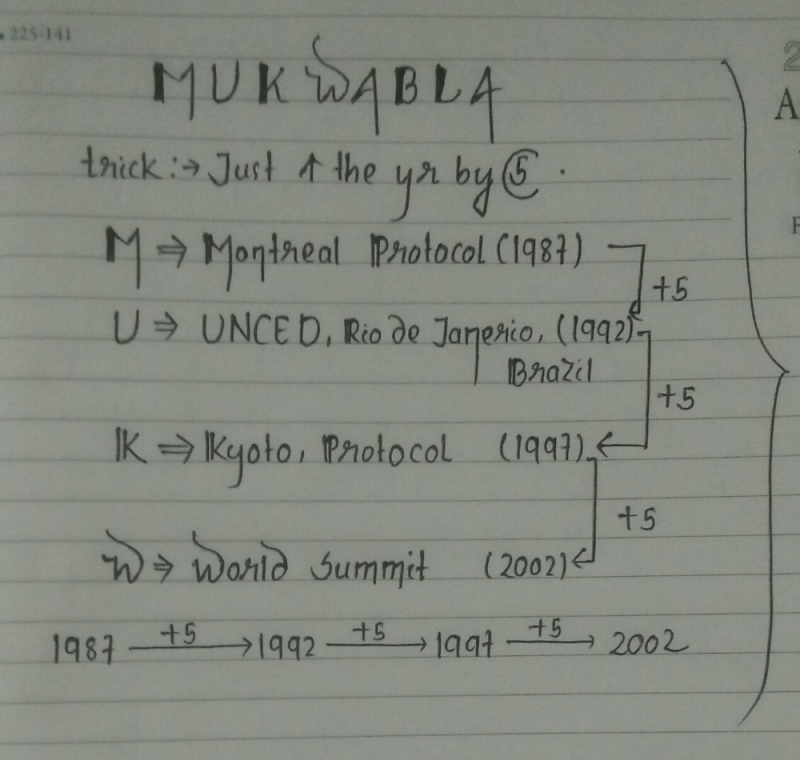 225-141
MUKWABLA
trick:→ Just ↑ the yr by 5.
M ⇒ Montreal Protocol (1987)
+5
U ⇒ UNCED, Rio de Janerio, (1992)
Brazil
+5
K ⇒ Kyoto, Protocol (1997)
+5
W ⇒ World Summit (2002)
1987 +5→ 1992 +5→ 1997 +5→ 2002
2
A